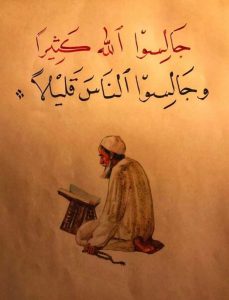 جَالِسُوْا اللّٰهَ كَثِيْرًا
وجَالِسُوْا النَاسَ قَلِيْلاً